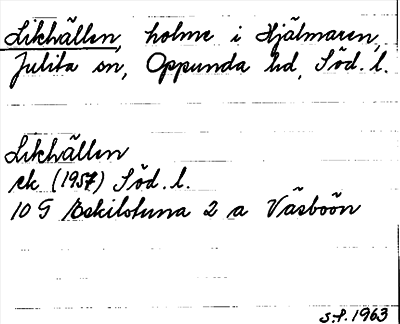 Likhällen, holme i Hjälmaren,
Julita sn, Oppunda hd, Söd. l.
Likhällen
ek (1957) Söd. l.
10 G Eskilstuna 2 a Väsboön
s.f. 1963